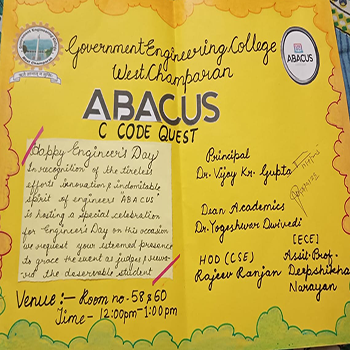 Government Engineering College
West Champaran
ABACUS
ABACUS
C CODE QUEST
Happy Engineer's Day
In recognition of the tireless
efforts innovation & indomitable
spirit of engineers 'ABACUS'
is hosting a special celebration
for Engineer's Day on this occasion
we request your esteemed presence
to grace the event as judges &
the deserable student
Principal
Dr. Vijay Kr. Gupta
Dean Academics
Dr. Yogeshwar Dwivedi
HOD (CSE)
Rajeev Ranjan
[ECE]
Assit. Prof.
Deepshikha
Narayan
Venue :- Room no - 58 & 60
Time - 12:00pm - 1:00pm